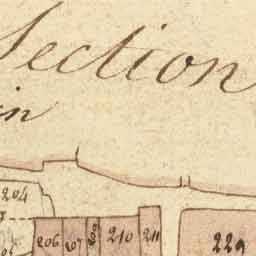 Section
in
204
206 207 209 210 211
229